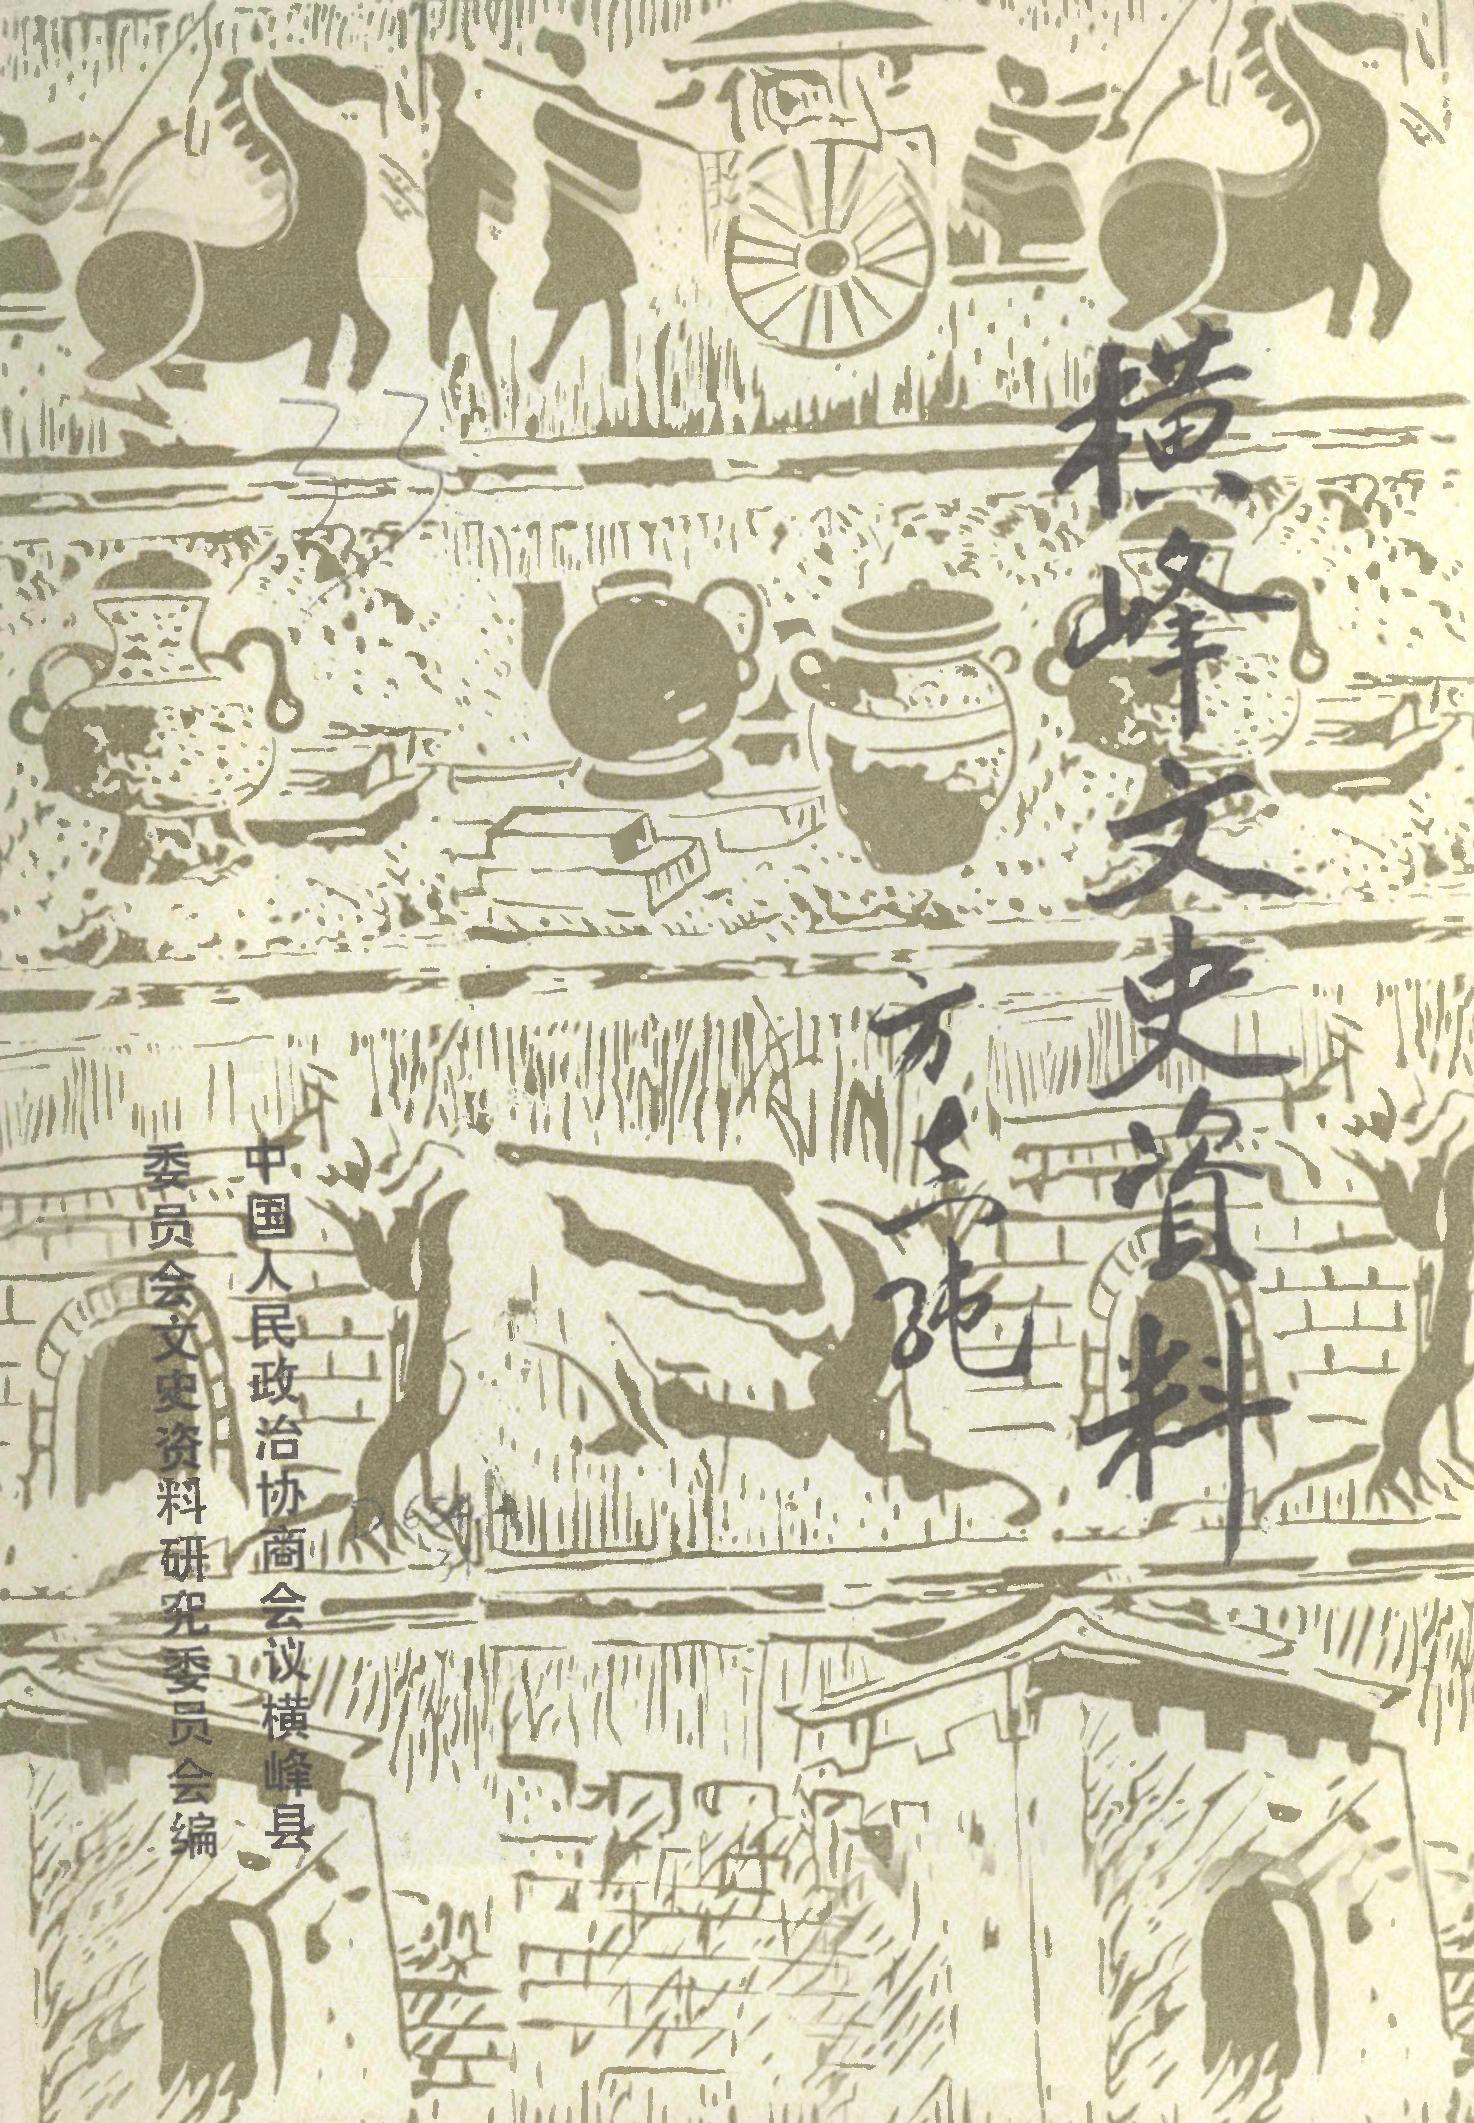 横峰文史資料
方志纯
中国人民政治协商会议横峰县
委员会文史资料研究委员会编